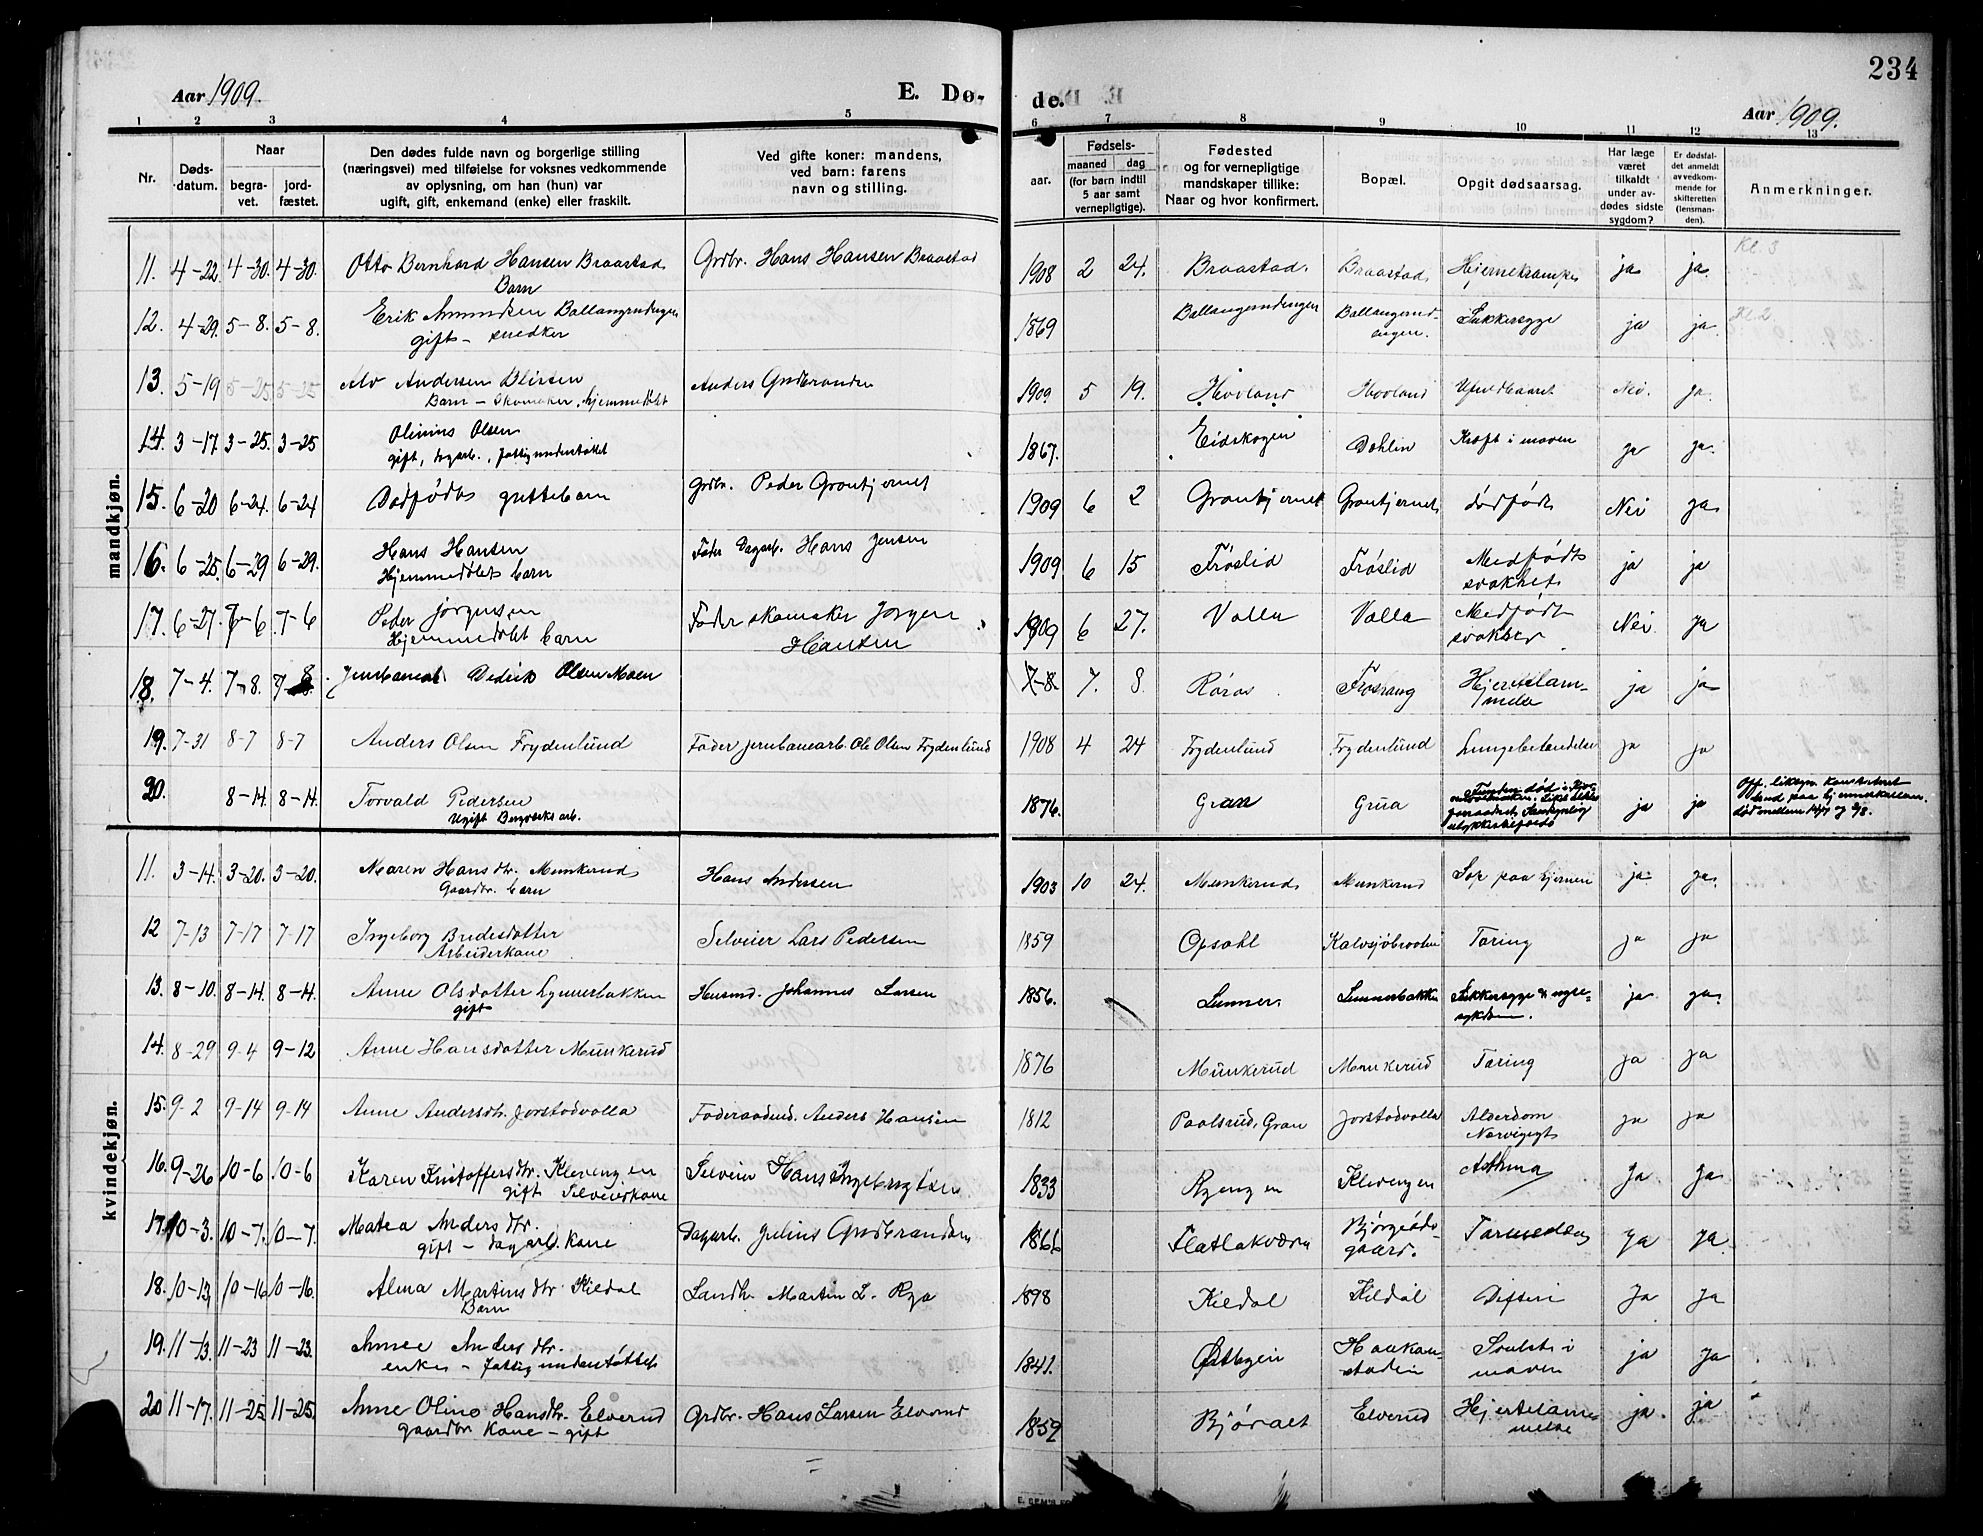 234
Aar 1909.
E. Dø-
de.
Aar 1909.
1 2 3 4 5 6 7 8 9 10 11 12 13
Nr.
Døds-datum.
Naar
begra-vet.
jord-fæstet.
Den dødes fulde navn og borgerlige stilling
(næringsvei) med tilføielse for voksnes vedkommende
av oplysning, om han (hun) var
ugift, gift, enkemand (enke) eller fraskilt.
Ved gifte koner: mandens,
ved barn: farens
navn og stilling.
Fødsels-
aar.
maaned
dag
(for barn indtil
5 aar samt
vernepligtige).
Fødested
og for vernepligtige
mandskaper tillike:
Naar og hvor konfirmert.
Bopæl.
Opgit dødsaarsag.
Har læge
været
tilkaldt
under av-
dødes sidste
sygdom?
Er dødsfal-
det anmeldt
av vedkom-
mende for
skifteretten
(lensman-
den).
Anmerkninger.
mandkjøn.
11. 4-22. 4-30. 4-30. Otto Bernhard Hansen Braastad Grdbr. Hans Hansen Braastad 1908 2 24. Braastad. Braastad. Hjernekrampe ja ja. Kl. 3
Barn
12. 4-29. 5-8. 5-8. Erik Amundsen Ballangrudengen 1869 Ballangrudengen Ballangerud- Sukkersyge ja ja. Kl. 2.
gift - snedker engen.
13. 5-19 5-25. 5-25 Anders Gudbrandsen 1909. 5 19. Hovland Hovland Nei. ja.
Alv Andersen
Barn - Skomaker, hjemmedøbt
14. 3-17. 3-25. 3-25 Olinius Olsen 1867. Eidskogen Dahlin Kræft i maven ja ja.
gift, dagarb., fattigunderstøttet
15. 6-20 6-24. 6-24 Dødfødt guttebarn Grdbr. Peder Grantjernet 1909 6 2 Grantjernet Grantjernet dødfødt Nei ja
16. 6-25. 6-29 6-29. Hans Hansen Fader Dagarb. Hans Jensen 1909 6 15 Frøslid Frøslid Medfødt ja ja
Hjemmedøbt barn svakhet
17. 6-27. 7-6. 7-6 Peder Jørgensen Fader skomaker Jørgen 1909 6 27. Volla Volla Medfødt Nei. ja
Hjemmedøbt barn Hansen svakhet
18. 7-4. 7-8. 7-8 Jernbanearb. Didrik Olsen Moen 7-8. 7. 8. Røros Hjertelam- ja ja
melse
19. 7-31 8-7 8-7 Anders Olsen Frydenlund Fader jernbanearb. Ole Olsen Frydenlund 1908 4 24 Frydenlund Frydenlund Lungebetændelse ja ja
20. 8-14. 8-14. Torvald Pedersen 1876. Gran Grua ja ja
Ugift Bergverksarb.
kvindekjøn.
11. 3-14. 3-20. 3-20. Maren Hansdtr. Munkerud Hans Andersen 1903 10 24. Munkerud Munkerud Sop paa hjernen ja. ja.
Gaardbr. barn
12 7-13 7-17 7-17 Ingeborg Bredesdatter Selveier Lars Pedersen 1859 Opsahl Tæring ja ja
Arbeiderkone
13. 8-10. 8-14. 8-14. Anne Olsdatter Lynnerbakken Husmd. Johannes Larsen 1856. Lunner Lunnerbakken Sukkersyge & nyre- ja ja.
gift sykdom.
14. 8-29 9-4 9-12 Anne Hansdatter Munkerud 1876 Munkerud Munkerud Tæring ja ja
15. 9-2 9-14 9-14 Anne Andersdtr. Jorstadvolla Føderaadsmd. Anders Hansen 1812 Paalsrud, Gran Jorstadvolla Alderdom ja ja
16. 9-26 10-6. 10-6 Karen Kristoffersdtr. Klevengen Selveier Hans Ingebrigtsen 1833 Klevengen Asthma ja ja.
gift Selveierkone
17. 10-3. 10-7. 10-7. Matea Andersdtr. Dagarb. Julius Gudbrandsen 1866 ja ja
gift - dagarb. Kone gaard.
18. 10-13. 10-16 10-16. Alma Martinsdtr. Kildal Landh. Martin L. Rya 1898 Kildal Kildal Difteri ja ja
Barn
19. 11-13. 11-23 11-23. Anne Andersdtr. 1841. Østhagen Haakan- Svulst i ja ja
enke - fattigunderstøttet stadin maven
20 11-17. 11-25. 11-25. Anne Olina Hansdtr. Elverud Grdbr. Hans Larsen Elverud 1859 Bjøralt Elverud Hjertelam- ja. ja
gaardbr. Kone - gift melse